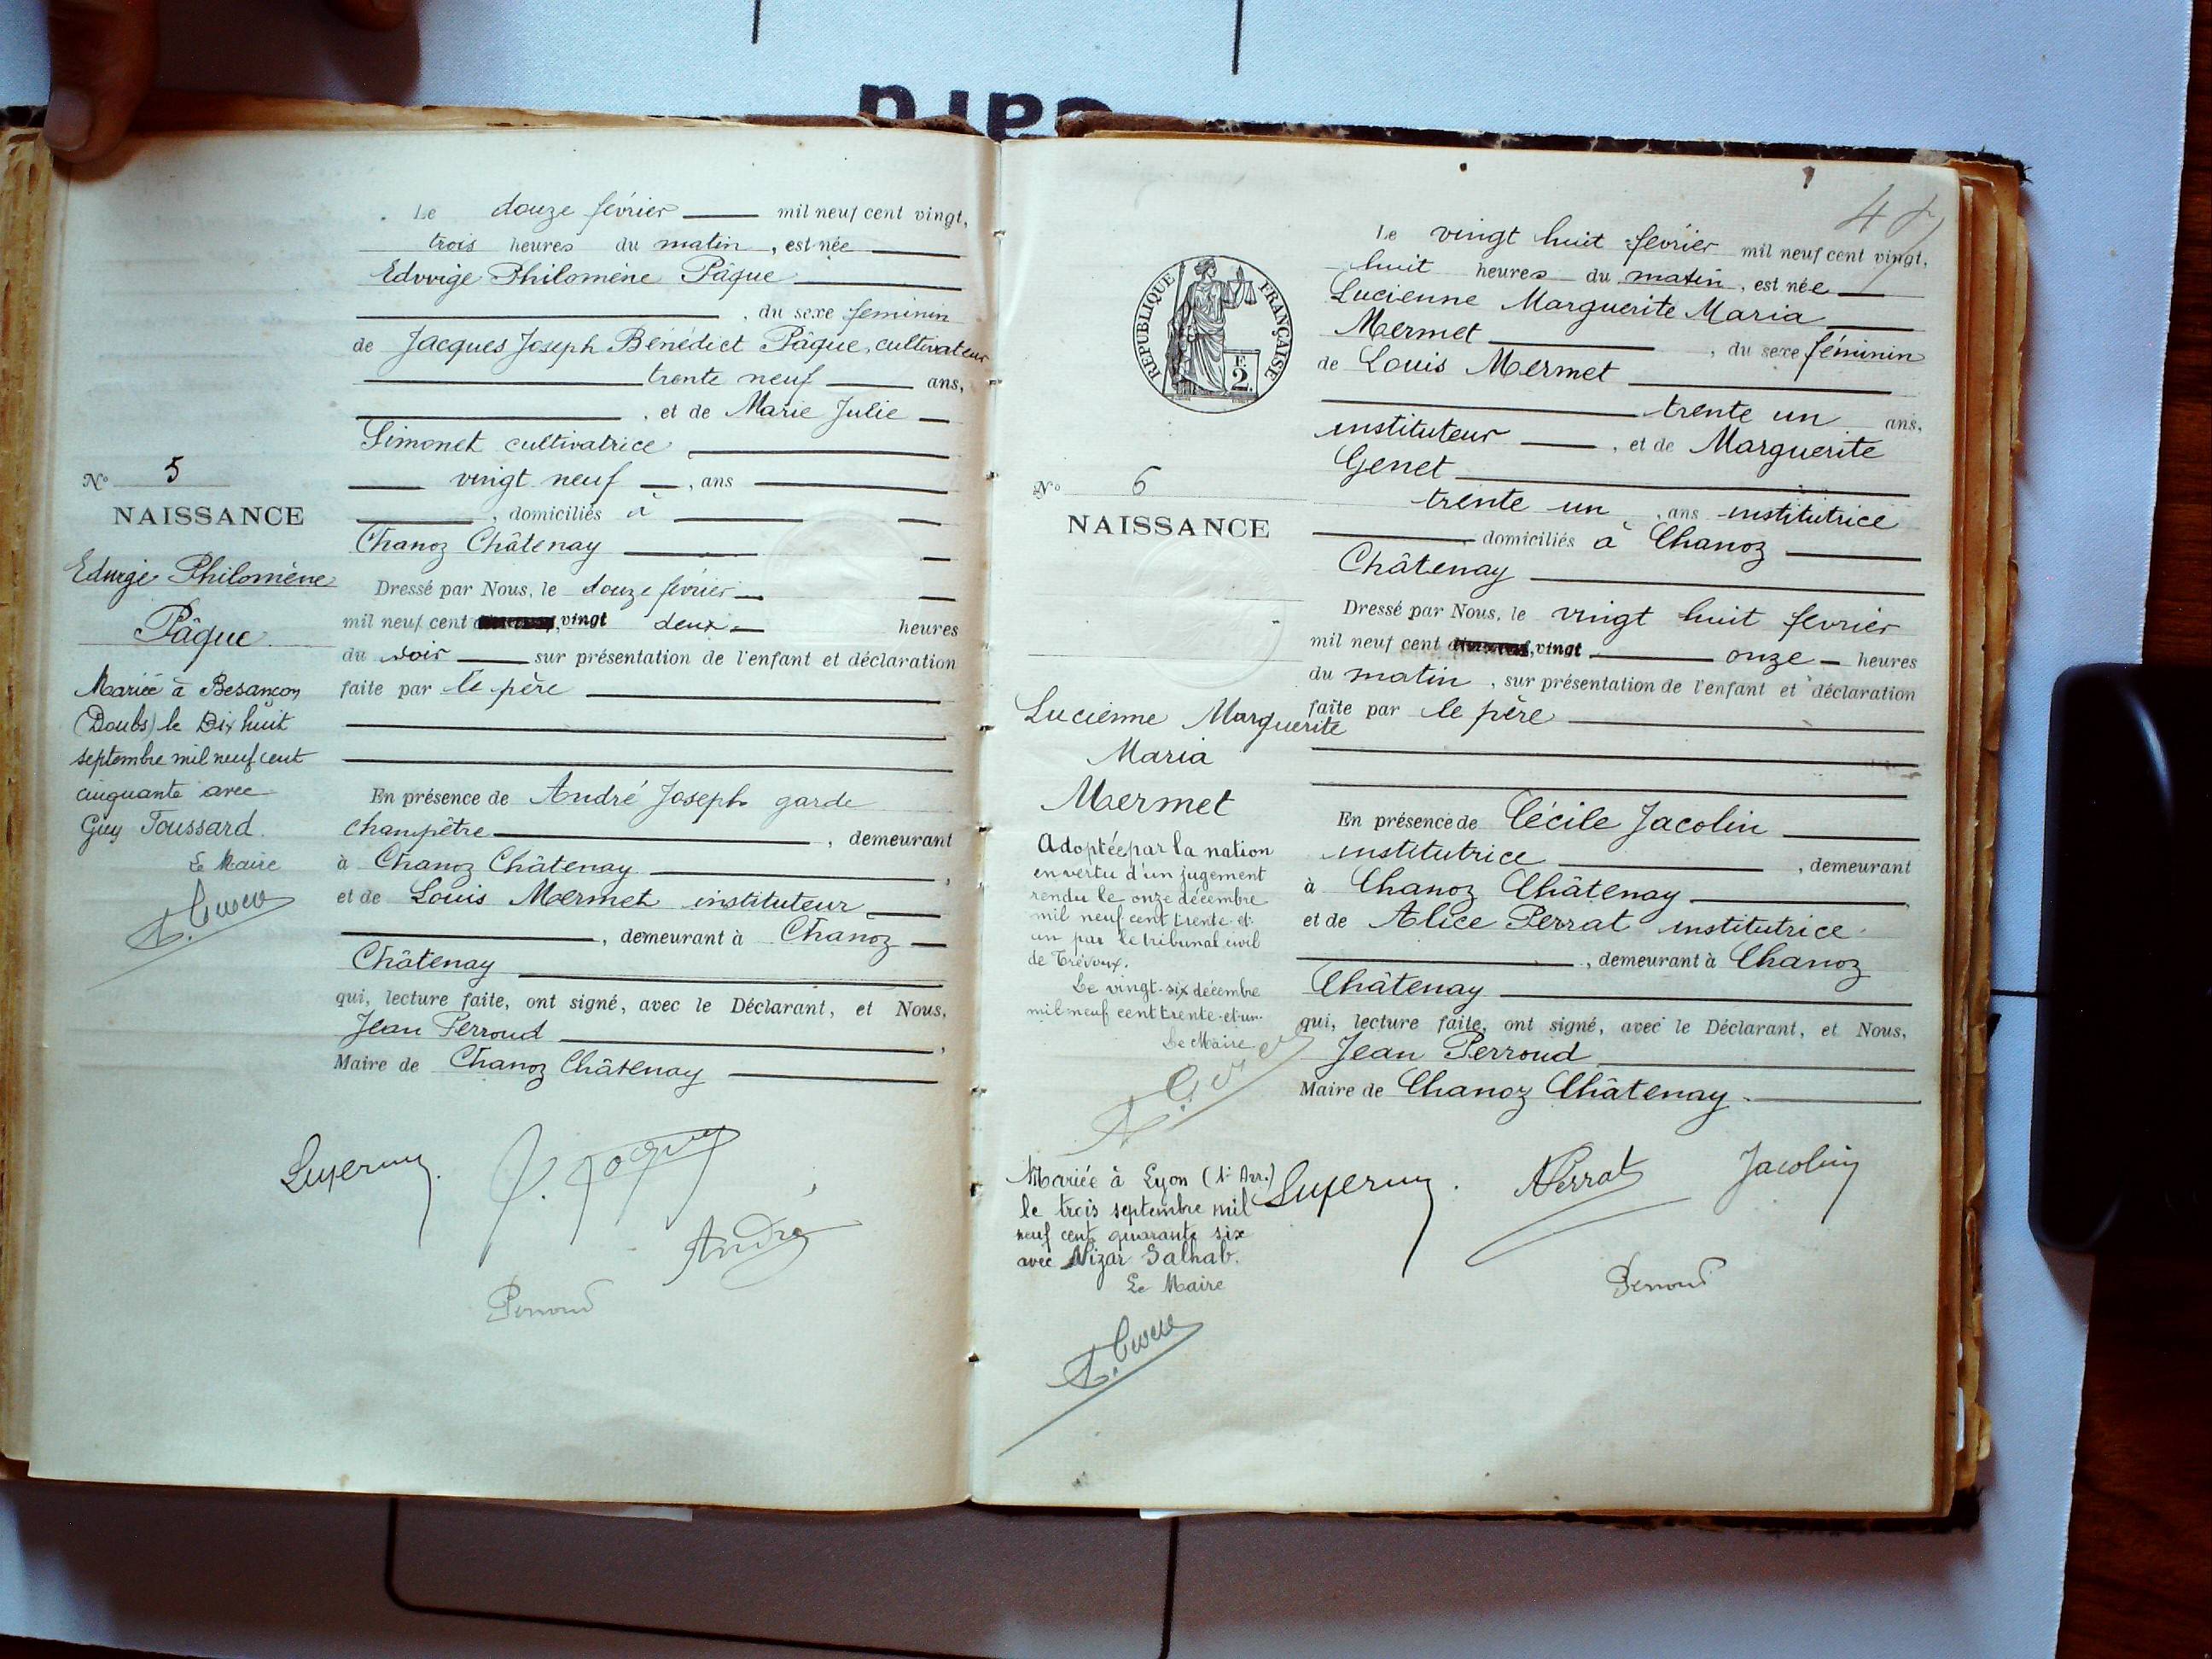 Le douze février mil neuf cent vingt,
trois heures du matin, est née
Edwige Philomène Pâque
, du sexe féminin
de Jacques Joseph Bénédict Pâque, cultivateur
trente neuf ans,
, et de Marie Julie
Simonet cultivatrice
vingt neuf, ans
, domiciliés à
Chanoz Châtenay
Dressé par Nous, le douze février
mil neuf cent vingt deux heures
du soir sur présentation de l'enfant et déclaration
faite par le père
En présence de André Joseph garde
champêtre, demeurant
à Chanoz Châtenay,
et de Louis Mermet instituteur
, demeurant à Chanoz
Châtenay
qui, lecture faite, ont signé, avec le Déclarant, et Nous,
Jean Perroud,
Maire de Chanoz Châtenay
N° 5
NAISSANCE
Edwige Philomène
Pâque
Mariée à Besançon
(Doubs) le Dix huit
septembre mil neuf cent
cinquante avec
Guy Toussard.
Le Maire
André
Perroud
Le vingt huit février mil neuf cent vingt,
huit heures du matin, est née
Lucienne Marguerite Maria
Mermet, du sexe féminin
de Louis Mermet
trente un ans,
instituteur, et de Marguerite
Genet
trente un, ans institutrice
domiciliés à Chanoz
Châtenay
Dressé par Nous, le vingt huit février
mil neuf cent vingt onze heures
du matin, sur présentation de l'enfant et déclaration
faite par le père
En présence de Cécile Jacolin
institutrice, demeurant
à Chanoz Châtenay,
et de Alice Perrat institutrice
, demeurant à Chanoz
Châtenay
qui, lecture faite, ont signé, avec le Déclarant, et Nous,
Jean Perroud
Maire de Chanoz Châtenay.
REPUBLIQUE FRANÇAISE
F.
2.
N° 6
NAISSANCE
Lucienne Marguerite
Maria
Mermet
Adoptée par la nation
en vertu d'un jugement
rendu le onze décembre
mil neuf cent trente-et-
un par le tribunal civil
de Trévoux.
Le vingt-six décembre
mil neuf cent trente-et-un.
Le Maire
Mariée à Lyon (1er Arr.)
le trois septembre mil
neuf cent quarante six
avec Nizar Salhab.
Le Maire
Perrat
Jacolin
Perroud